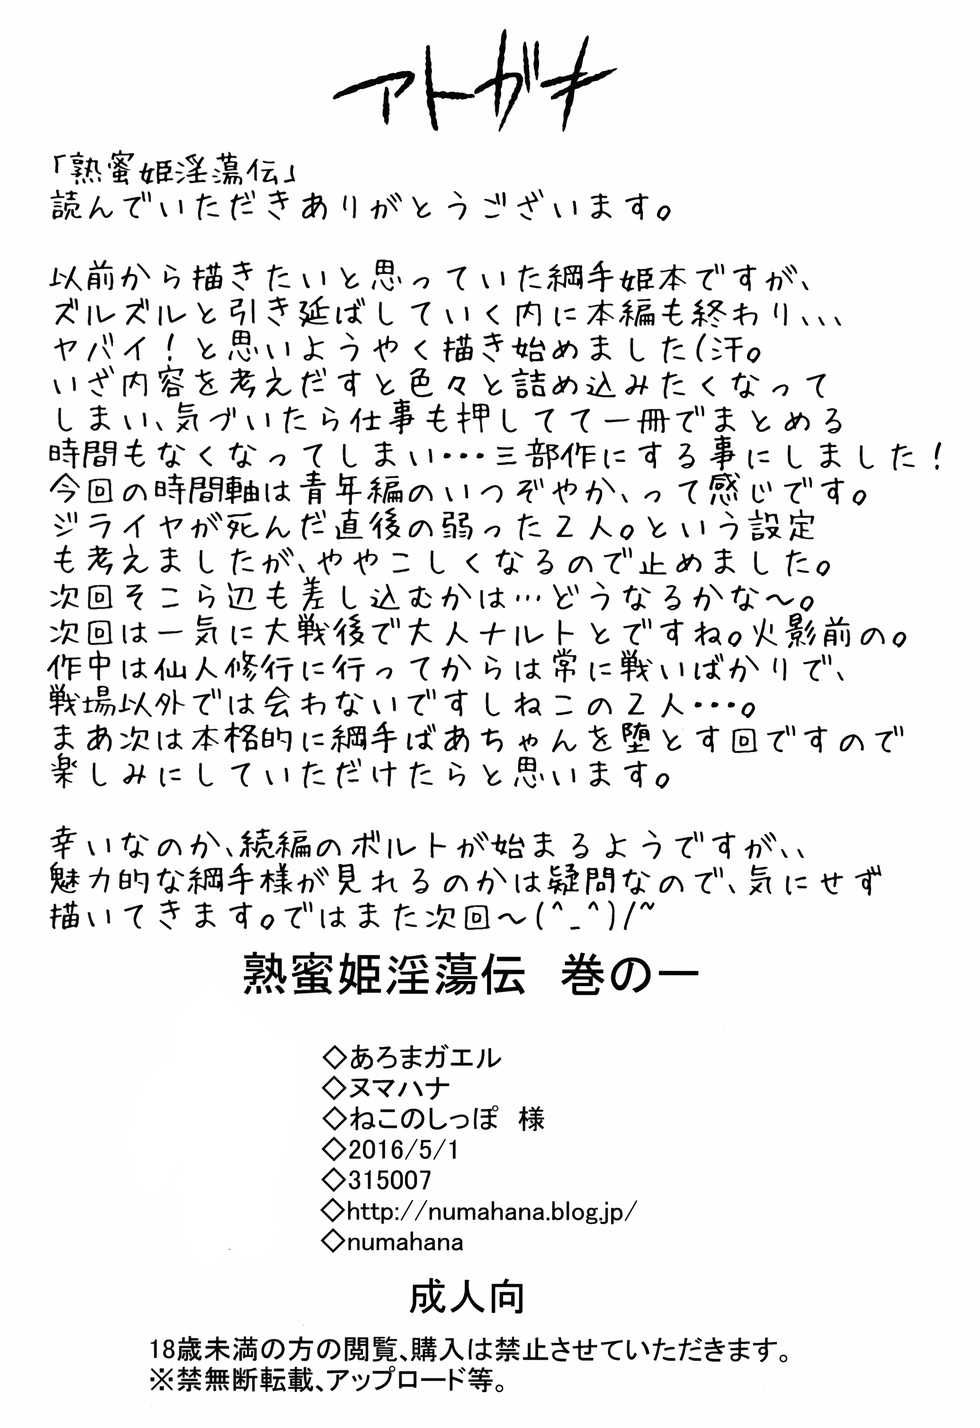 アトガキ
「熟蜜姫淫蕩伝」
読んでいただきありがとうございます。
以前から描きたいと思っていた綱手姫本ですが、
ズルズルと引き延ばしていく内に本編も終わり、、、
ヤバイ！と思いようやく描き始めました(汗。
いざ内容を考えだすと色々と詰め込みたくなって
しまい、気づいたら仕事も押してて一冊でまとめる
時間もなくなってしまい・・・三部作にする事にしました！
今回の時間軸は青年編のいつぞやか、って感じです。
ジライヤが死んだ直後の弱った2人。という設定
も考えましたが、ややこしくなるので止めました。
次回そこら辺も差し込むかは…どうなるかな～。
次回は一気に大戦後で大人ナルトとですね。火影前の。
作中は仙人修行に行ってからは常に戦いばかりで、
戦場以外では会わないですしねこの2人・・・。
まあ次は本格的に綱手ばあちゃんを堕とす回ですので
楽しみにしていただけたらと思います。
幸いなのか、続編のボルトが始まるようですが、、
魅力的な綱手様が見れるのかは疑問なので、気にせず
描いてきます。ではまた次回～(^_^)/~
熟蜜姫淫蕩伝　巻の一
◇あろまガエル
◇ヌマハナ
◇ねこのしっぽ　様
◇2016/5/1
◇315007
◇http://numahana.blog.jp/
◇numahana
成人向
18歳未満の方の閲覧、購入は禁止させていただきます。
※禁無断転載、アップロード等。